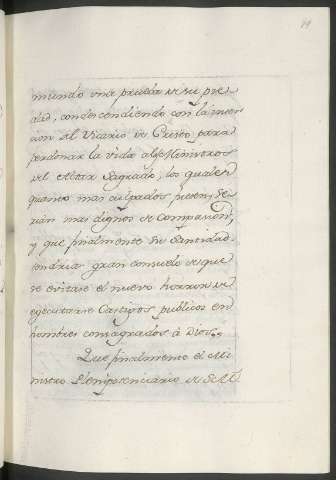 mundo una prueba de su pie-
dad, condescendiendo con la inter-
cion al Vicario de Cristo para
perdonar la vida a los Ministros
del Altar Sagrado, los quales
quanto mas culpados fuesen, se-
rian mas dignos de Compasion,
y que finalmente su Santidad
tendria gran consuelo de que
se evitase el nuevo horror de
egecutarse Castigos publicos en
hombres consagrados à Dios.
Que finalmente el Mi-
nistro Plenipotenciario de S. M.